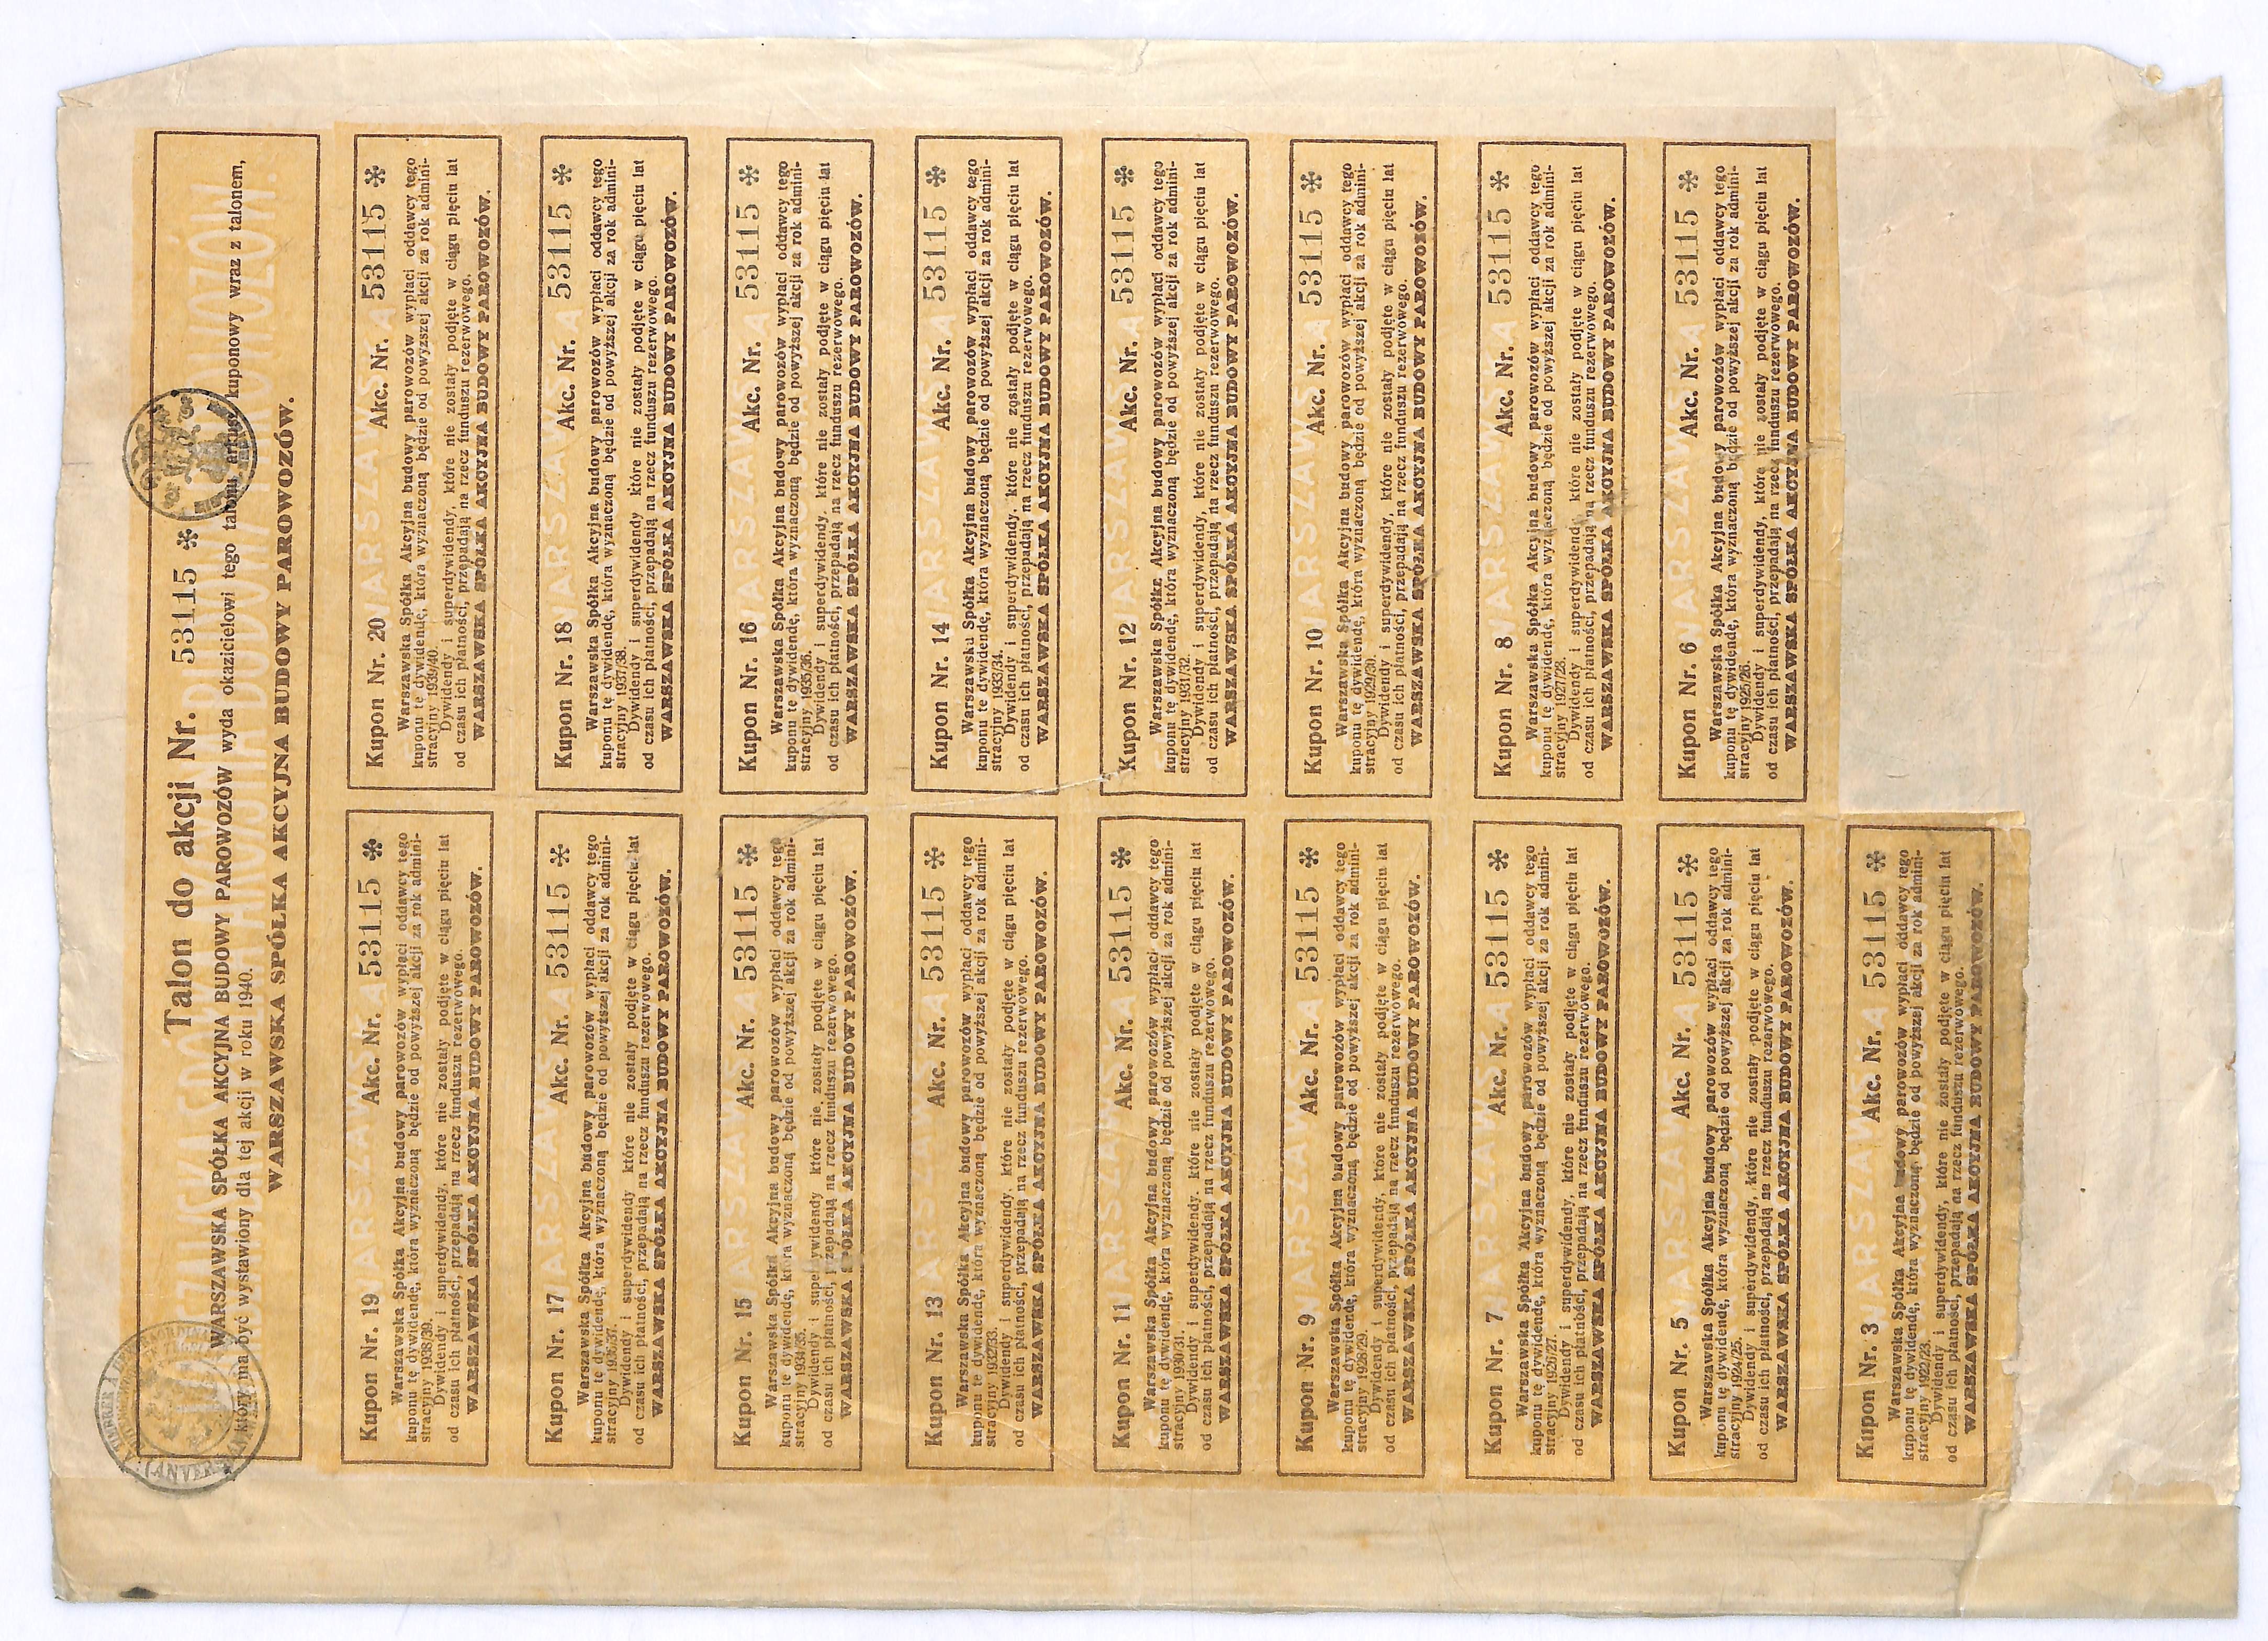 Talon do akcji Nr. 53115 *
WARSZAWSKA SPÓŁKA AKCYJNA BUDOWY PAROWOZÓW wyda okazicielowi tego talonu arkusz kuponowy wraz z talonem,
który ma być wystawiony dla tej akcji w roku 1940.
WARSZAWSKA SPÓŁKA AKCYJNA BUDOWY PAROWOZÓW.
Kupon Nr. 19 Akc. Nr. 53115 *
Warszawska Spółka Akcyjna budowy parowozów wypłaci oddawcy tego
kuponu tę dywidendę, która wyznaczoną będzie od powyższej akcji za rok admini-
stracyjny 1938/39.
Dywidendy i superdywidendy, które nie zostały podjęte w ciągu pięciu lat
od czasu ich płatności, przepadają na rzecz funduszu rezerwowego.
WARSZAWSKA SPÓŁKA AKCYJNA BUDOWY PAROWOZÓW.
Kupon Nr. 20 Akc. Nr. 53115 *
Warszawska Spółka Akcyjna budowy parowozów wypłaci oddawcy tego
kuponu tę dywidendę, która wyznaczoną będzie od powyższej akcji za rok admini-
stracyjny 1939/40.
Dywidendy i superdywidendy, które nie zostały podjęte w ciągu pięciu lat
od czasu ich płatności, przepadają na rzecz funduszu rezerwowego.
WARSZAWSKA SPÓŁKA AKCYJNA BUDOWY PAROWOZÓW.
Kupon Nr. 17 Akc. Nr. 53115 *
Warszawska Spółka Akcyjna budowy parowozów wypłaci oddawcy tego
kuponu tę dywidendę, która wyznaczoną będzie od powyższej akcji za rok admini-
stracyjny 1936/37.
Dywidendy i superdywidendy które nie zostały podjęte w ciągu pięciu lat
od czasu ich płatności, przepadają na rzecz funduszu rezerwowego.
WARSZAWSKA SPÓŁKA AKCYJNA BUDOWY PAROWOZÓW.
Kupon Nr. 18 Akc. Nr. 53115 *
Warszawska Spółka Akcyjna budowy parowozów wypłaci oddawcy tego
kuponu tę dywidendę, która wyznaczoną będzie od powyższej akcji za rok admini-
stracyjny 1937/38.
Dywidendy i superdywidendy które nie zostały podjęte w ciągu pięciu lat
od czasu ich płatności, przepadają na rzecz funduszu rezerwowego.
WARSZAWSKA SPÓŁKA AKCYJNA BUDOWY PAROWOZÓW.
Kupon Nr. 15 Akc. Nr. 53115 *
Warszawska Spółka Akcyjna budowy parowozów wypłaci oddawcy tego
kuponu tę dywidendę, która wyznaczoną będzie od powyższej akcji za rok admini-
stracyjny 1934/35.
Dywidendy i superdywidendy które nie zostały podjęte w ciągu pięciu lat
od czasu ich płatności, przepadają na rzecz funduszu rezerwowego.
WARSZAWSKA SPÓŁKA AKCYJNA BUDOWY PAROWOZÓW.
Kupon Nr. 16 Akc. Nr. 53115 *
Warszawska Spółka Akcyjna budowy parowozów wypłaci oddawcy tego
kuponu tę dywidendę, która wyznaczoną będzie od powyższej akcji za rok admini-
stracyjny 1935/36.
Dywidendy i superdywidendy. które nie zostały podjęte w ciągu pięciu lat
od czasu ich płatności, przepadają na rzecz funduszu rezerwowego.
WARSZAWSKA SPÓŁKA AKCYJNA BUDOWY PAROWOZÓW.
Kupon Nr. 13 Akc. Nr. 53115 *
Warszawska Spółka Akcyjna budowy parowozów wypłaci oddawcy tego
kuponu tę dywidendę, która wyznaczoną będzie od powyższej akcji za rok admini-
stracyjny 1932/33.
Dywidendy i superdywidendy. które nie zostały podjęte w ciągu pięciu lat
od czasu ich płatności, przepadają na rzecz funduszu rezerwowego.
WARSZAWSKA SPÓŁKA AKCYJNA BUDOWY PAROWOZÓW.
Kupon Nr. 14 Akc. Nr. 53115 *
Warszawska Spółka Akcyjna budowy parowozów wypłaci oddawcy tego
kuponu tę dywidendę, która wyznaczoną będzie od powyższej akcji za rok admini-
stracyjny 1933/34.
Dywidendy i superdywidendy. które nie zostały podjęte w ciągu pięciu lat
od czasu ich płatności, przepadają na rzecz funduszu rezerwowego.
WARSZAWSKA SPÓŁKA AKCYJNA BUDOWY PAROWOZÓW.
Kupon Nr. 11 Akc. Nr. 53115 *
Warszawska Spółka Akcyjna budowy parowozów wypłaci oddawcy tego
kuponu tę dywidendę, która wyznaczoną będzie od powyższej akcji za rok admini-
stracyjny 1930/31.
Dywidendy i superdywidendy. które nie zostały podjęte w ciągu pięciu lat
od czasu ich płatności, przepadają na rzecz funduszu rezerwowego.
WARSZAWSKA SPÓŁKA AKCYJNA BUDOWY PAROWOZÓW.
Kupon Nr. 12 Akc. Nr. 53115 *
Warszawska Spółka Akcyjna budowy parowozów wypłaci oddawcy tego
kuponu tę dywidendę, która wyznaczoną będzie od powyższej akcji za rok admini-
stracyjny 1931/32.
Dywidendy i superdywidendy, które nie zostały podjęte w ciągu pięciu lat
od czasu ich płatności, przepadają na rzecz funduszu rezerwowego.
WARSZAWSKA SPÓŁKA AKCYJNA BUDOWY PAROWOZÓW.
Kupon Nr. 9 Akc. Nr. 53115 *
Warszawska Spółka Akcyjna budowy parowozów wypłaci oddawcy tego
kuponu tę dywidendę, która wyznaczoną będzie od powyższej akcji za rok admini-
stracyjny 1928/29.
Dywidendy i superdywidendy, które nie zostały podjęte w ciągu pięciu lat
od czasu ich płatności, przepadają na rzecz funduszu rezerwowego.
WARSZAWSKA SPÓŁKA AKCYJNA BUDOWY PAROWOZÓW.
Kupon Nr. 10 Akc. Nr. 53115 *
Warszawska Spółka Akcyjna budowy parowozów wypłaci oddawcy tego
kuponu tę dywidendę, która wyznaczoną będzie od powyższej akcji za rok admini-
stracyjny 1929/30.
Dywidendy i superdywidendy, które nie zostały podjęte w ciągu pięciu lat
od czasu ich płatności, przepadają na rzecz funduszu rezerwowego.
WARSZAWSKA SPÓŁKA AKCYJNA BUDOWY PAROWOZÓW.
Kupon Nr. 7 Akc. Nr. 53115 *
Warszawska Spółka Akcyjna budowy parowozów wypłaci oddawcy tego
kuponu tę dywidendę, która wyznaczoną będzie od powyższej akcji za rok admini-
stracyjny 1926/27.
Dywidendy i superdywidendy, które nie zostały podjęte w ciągu pięciu lat
od czasu ich płatności, przepadają na rzecz funduszu rezerwowego.
WARSZAWSKA SPÓŁKA AKCYJNA BUDOWY PAROWOZÓW.
Kupon Nr. 8 Akc. Nr. 53115 *
Warszawska Spółka Akcyjna budowy parowozów wypłaci oddawcy tego
kuponu tę dywidendę, która wyznaczoną będzie od powyższej akcji za rok admini-
stracyjny 1927/28.
Dywidendy i superdywidendy, które nie zostały podjęte w ciągu pięciu lat
od czasu ich płatności, przepadają na rzecz funduszu rezerwowego.
WARSZAWSKA SPÓŁKA AKCYJNA BUDOWY PAROWOZÓW.
Kupon Nr. 5 Akc. Nr. 53115 *
Warszawska Spółka Akcyjna budowy parowozów wypłaci oddawcy tego
kuponu tę dywidendę, która wyznaczoną będzie od powyższej akcji za rok admini-
stracyjny 1924/25.
Dywidendy i superdywidendy, które nie zostały podjęte w ciągu pięciu lat
od czasu ich płatności, przepadają na rzecz funduszu rezerwowego.
WARSZAWSKA SPÓŁKA AKCYJNA BUDOWY PAROWOZÓW.
Kupon Nr. 6 Akc. Nr. 53115 *
Warszawska Spółka Akcyjna budowy parowozów wypłaci oddawcy tego
kuponu tę dywidendę, która wyznaczoną będzie od powyższej akcji za rok admini-
stracyjny 1925/26.
Dywidendy i superdywidendy, które nie zostały podjęte w ciągu pięciu lat
od czasu ich płatności, przepadają na rzecz funduszu rezerwowego.
WARSZAWSKA SPÓŁKA AKCYJNA BUDOWY PAROWOZÓW.
Kupon Nr. 3 Akc. Nr. 53115 *
Warszawska Spółka Akcyjna budowy parowozów wypłaci oddawcy tego
kuponu tę dywidendę, która wyznaczoną będzie od powyższej akcji za rok admini-
stracyjny 1922/23.
Dywidendy i superdywidendy, które nie zostały podjęte w ciągu pięciu lat
od czasu ich płatności, przepadają na rzecz funduszu rezerwowego.
WARSZAWSKA SPÓŁKA AKCYJNA BUDOWY PAROWOZÓW.